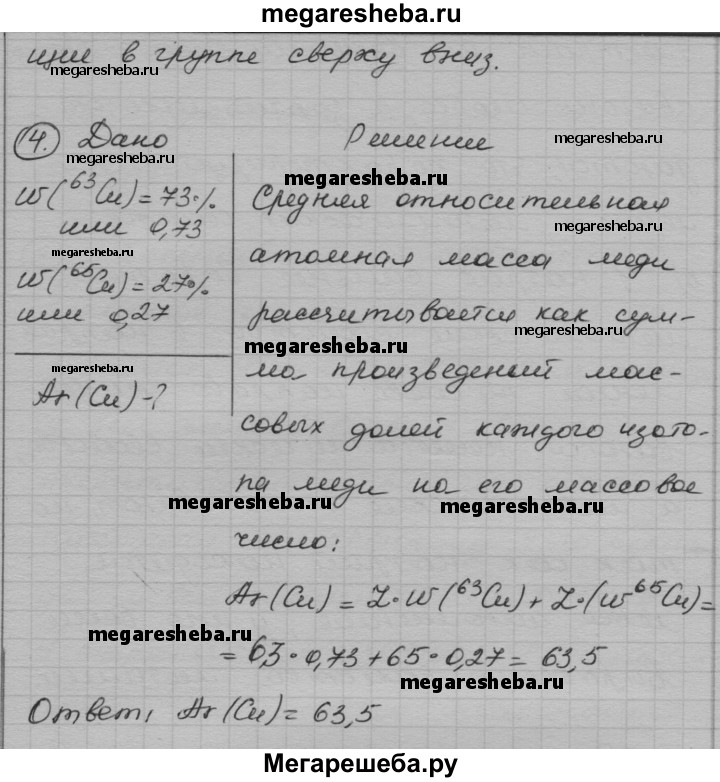 megaresheba.ru
щие в группе сверху вниз.
megaresheba.ru
4. Дано Решение
megaresheba.ru
megaresheba.ru
megaresheba.ru
W(⁶³Cu) = 73% Средняя относительная
или 0,73
megaresheba.ru
megaresheba.ru
W(⁶⁵Cu) = 27% атомная масса меди
или 0,27 рассчитывается как сум-
megaresheba.ru
megaresheba.ru
megaresheba.ru
Ar(Cu) -? ма произведений мас-
совых долей каждого изото-
па меди на его массовое
megaresheba.ru
megaresheba.ru
число:
Ar(Cu) = Z·W(⁶³Cu) + Z·(W⁶⁵Cu) =
megaresheba.ru
= 63·0,73 + 65·0,27 = 63,5
megaresheba.ru
Ответ: Ar(Cu) = 63,5
Мегарешеба.ру